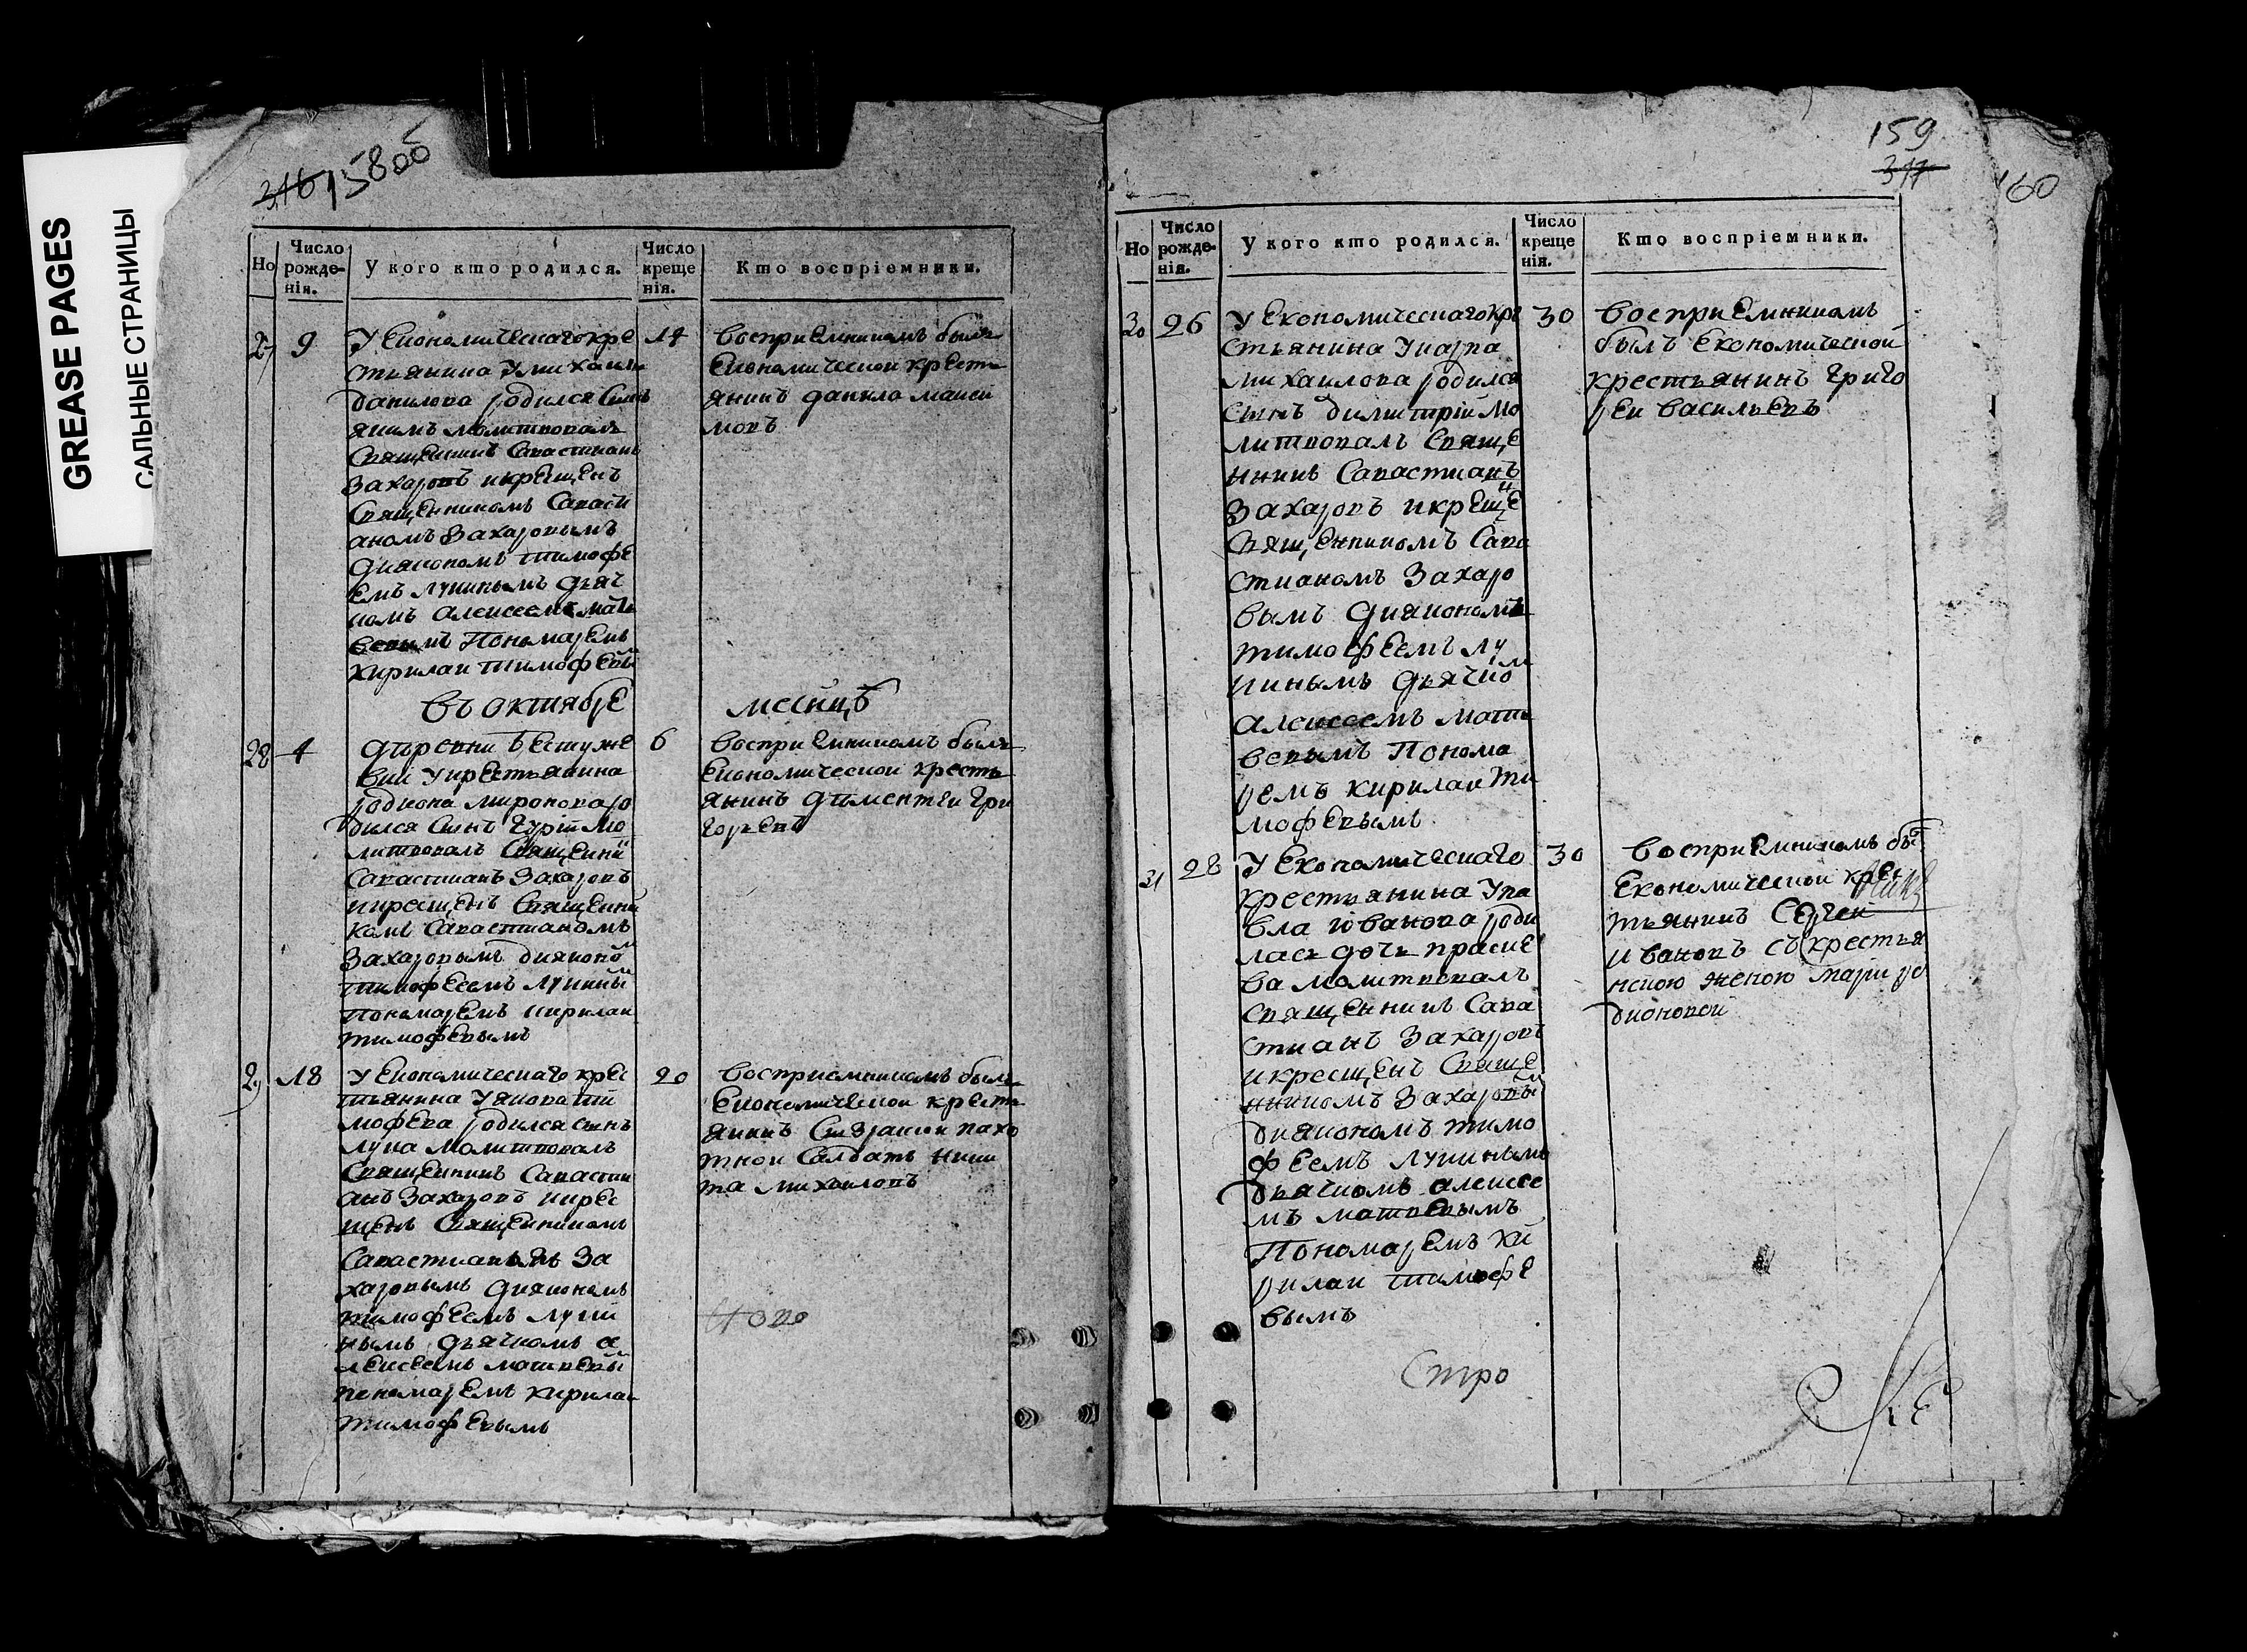 GREASE PAGES
САЛЬНЫЕ СТРАНИЦЫ
316 158 об
Но
Число рожденія.
У кого кто родился.
Число крещенія.
Кто воспріемники.
27 9
У Економическаго кре
стьянина У михаила
данилова родился Сынъ
акимъ молитвовалъ
Священникъ Савастианъ
Захаровъ икрещенъ
Священникомъ Савасти
аномъ Захаровымъ
диякономъ тимофе
емъ лукинымъ дьяч
комъ алексеемъ матъ
вевымъ Пономаремъ
кирилаи тимофеевы
14
восприемникомъ былъ
Економической кресть
янинъ данило макси
мовъ
въ октябре месице
28 4
дѣревни бестуже
вки у крестьянина
родиона миронова ро
дился Сынъ гурій мо
литвовалъ Священни
Савастианъ Захаровъ
икрещенъ Священни
комъ Савастианомъ
Захаровымъ диякано
тимофеемъ лукины
Пономаремъ кирилаи
тимофевымъ
6
восприемникомъ былъ
Економической кресть
янинъ дѣментеи гри
горьевъ
29 18
У Економическаго крес
тьянина У якова ти
мофева родился сынъ
лука молитвовалъ
Священникъ Савасти
анъ Захаровъ икрес
щенъ Священникомъ
Савастианомъ За
харовымъ диякономъ
тимофеемъ луки
нымъ дьячкомъ а
лексеемъ матвевы
пономаремъ кирилаи
тимофевымъ
20
восприемникомъ былъ
Економической кресть
янинъ пахо
тнои Салдатъ ники
та михаиловъ
159
317
160
Но
Число рожденія.
У кого кто родился.
Число крещенія.
Кто воспріемники.
30 26
У Економическаго кре
стьянина У карпа
михаилова родился
сынъ димитрій мо
литвовалъ Свяще
нникъ Савастианъ
Захаровъ икреще
Священникомъ Сава
стианомъ Захаро
вымъ диякономъ
тимофеемъ лу
кинымъ дьячко
алексеемъ мать
вевымъ Понома
ремъ кирилаи ти
мофевымъ
30
восприемникомъ
былъ Економической
крестьянинъ григо
реи васильевъ
31 28
У Економическаго
крестьянина У па
вла иванова роди
лась дочь праске
ва молитвовалъ
Священникъ Сава
стианъ Захаровъ
икресщенъ Свяще
нникомъ Захаровы
диякономъ тимо
феемъ лукинымъ
дьячкомъ алексее
мъ матвевымъ
Пономаремъ ки
рилаи тимофе
вымъ
30
восприемникомъ бы
Економической крес
тьянинъ Сергей
ивановъ съ крестья
нскою женою марїи ро
дионовой
Стро